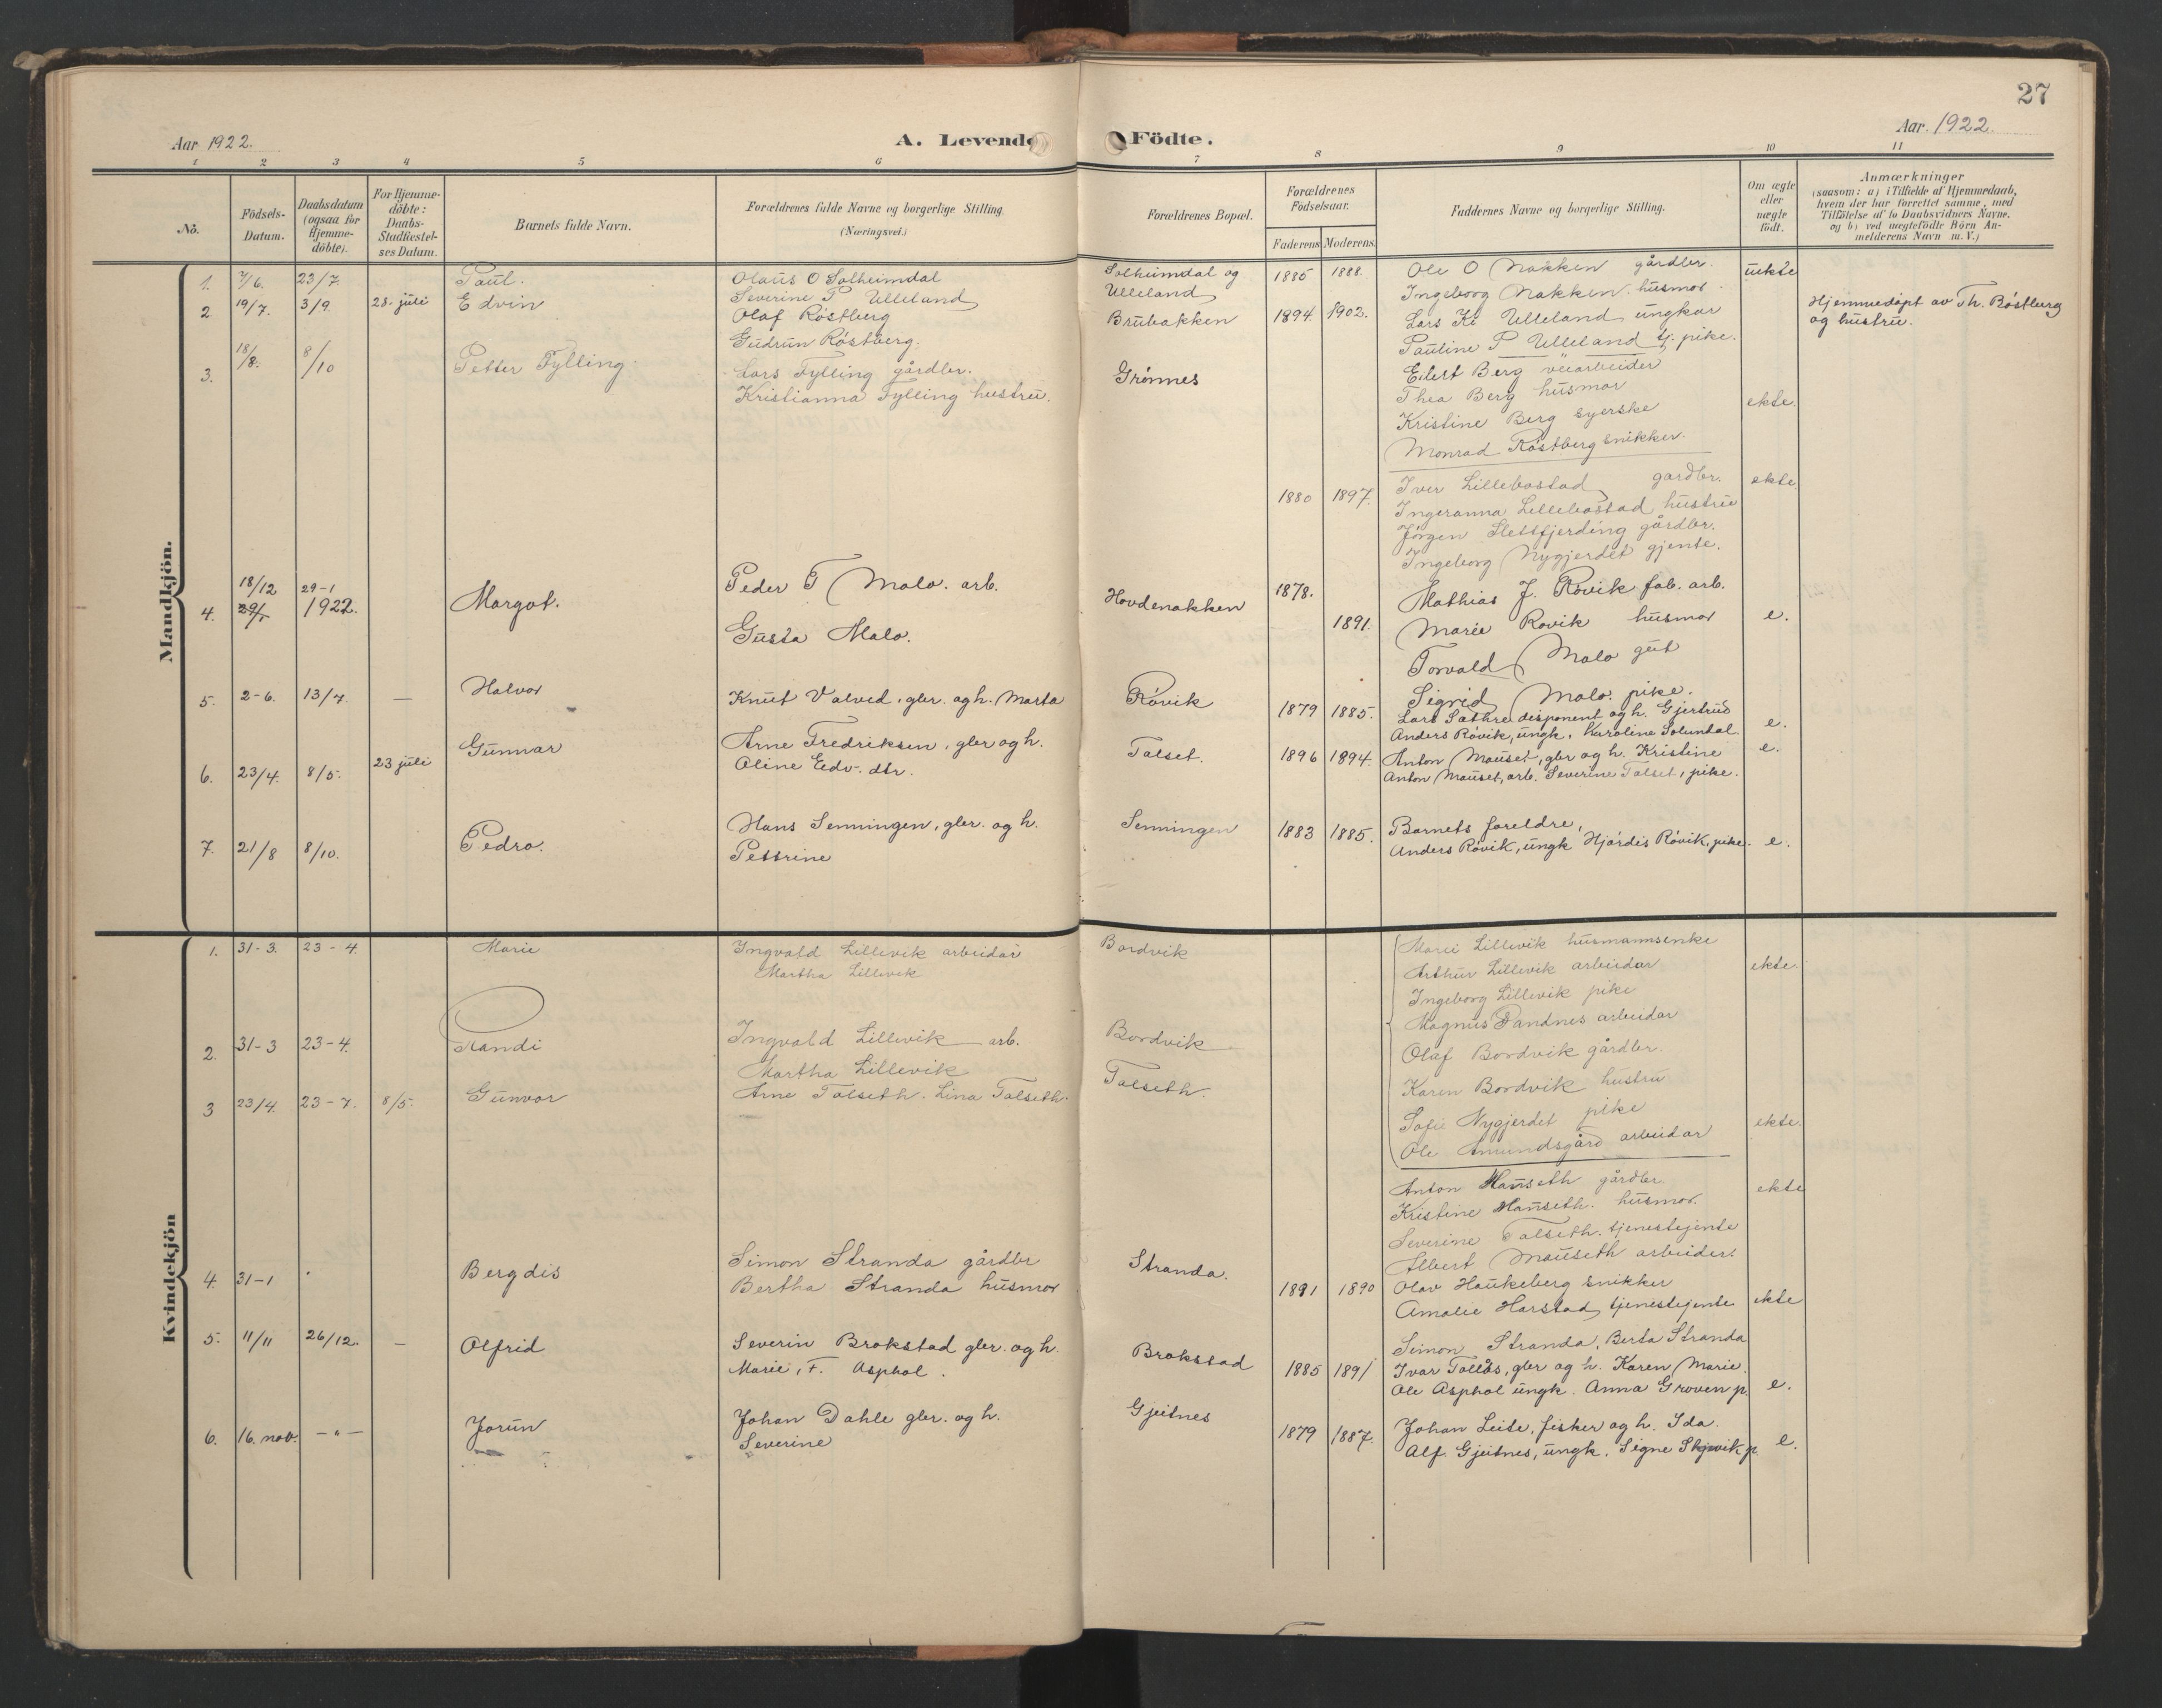 27
Aar 1922. A. Levende Födte. Aar. 1922.
1 2 3 4 5 6 7 8 9 10 11
No.
Födsels-Datum.
Daabsdatum (ogsaa for Hjemme-döbte).
For Hjemme-döbte: Daabs-Stadfæstel-ses Datum.
Barnets fulde Navn.
Forældrenes fulde Navne og borgerlige Stilling. (Næringsvei.)
Forældrenes Bopæl.
Forældrenes Födselsaar.
Faderens Moderens.
Faddernes Navne og borgerlige Stilling.
Om ægte eller uægte födt.
Anmærkninger
(saasom: a) i Tilfælde af Hjemmedaab,
hvem der har forrettet samme, med
Tilföielse af to Daabsvidners Navne.
og b) ved uægtefödte Börn An-
melderens Navn m. V.)
Mandkjön.
1. 7/6. 23/7. Paul. Olaus O Solheimdal Solheimdal og 1885 1888. Ole O Nakken gårdbr. uekte
Severine P Ulleland Ulleland Ingeborg Nakken husmor.
2 19/7. 3/9. 28. juli Edvin Olaf Röstberg Brubakken 1894. 1902. Lars Ulleland ungkar Hjemmedöpt av Th. Röstberg
Gudrun Röstberg. Pauline P Ulleland tj. pike. og hustru.
3. 18/8. 8/10 Petter Fylling. Lars Fylling gårdbr. Grönnes Eilert Berg veiarbeider
Kristianna Fylling hustru. Thea Berg husmor ekte.
Kristine Berg syerske
Monrad Röstberg snikker.
1880 1897. Iver Lillebostad gardbr. ekte.
Ingeranna Lillebostad hustru
Jörgen Slettfjerding gårdbr.
Ingeborg Nygjerdet gjente.
18/12 29-1
4. 29/1 1922. Margot. Peder T Malo. arb. Hovdenakken 1878. Mathias J. Rövik fab. arb.
Gusta Malo. 1891. Marie Rovik husmor e.
Torvald Malo gut
Sigrid Malo. pike.
5. 2-6. 13/7. — Halvor Knut Valved, gbr. og h. Marta Rövik 1879 1885. Lars Sæthre disponent og h. Gjertrud e.
Anders Rövik, ungk. Karoline Solemdal.
6. 23/4. 8/5. 23 juli Gunnar Arne Fredriksen, gbr og h. Talset. 1896 1894. Anton Mauset, gbr og h. Kristine e.
Oline Edv. dtr. Anton Mauset, arb. Severine Talset, pike.
7. 21/8 8/10. Pedro. Hans Senningen, gbr. og h. Senningen 1883 1885. Barnets foreldre,
Pettrine Anders Rövik, ungk Hjördis Rövik, pike. e.
Kvindekjön
1. 31-3. 23-4. Marie Ingvald Lillevik arbeidar Bordvik Marie Lillevik husmannsenke
Martha Lillevik Arthur Lillevik arbeidar ekte.
Ingeborg Lillevik pike
Magnus Sandnes arbeidar
2. 31-3 23-4. Randi Ingvald Lillevik arb. Bordvik Olaf Bordvik gårdbr.
Martha Lillevik Karen Bordvik hustru
3 23/4. 23-7. 8/5. Gunvor Arne Talseth. Lina Talseth. Talseth. Sofie Nygjerdet pike ekte.
Ole Amundsgård arbeidar
Anton Mauseth gårdbr. ekte
Kristine Mauseth. husmor.
Severine Talseth. tjenestejente
Albert Mauseth arbeider.
4. 31-1 Bergdis Simon Stranda gårdbr Stranda. 1891 1890 Olav Haukeberg snikker
Bertha Stranda husmor Amalie Harstad tjenestejente ekte
Simon Stranda, Berta Stranda
5. 11/11 26/12. — Olfrid Severin Brokstad gbr. og h. Brokstad 1885 1891 Ivar Tollås, gbr og h. Karen Marie.
Marie, F. Asphol. Ole Asphol ungk. Anna Groven p. e.
6. 16. nov. -"- Jorun Johan Dahle gbr. og h. Gjeitnes 1879 1887. Johan Leite, fisker og h. Ida.
Severine Alf Gjeitnes, ungk. Signe Skjevik p. e.